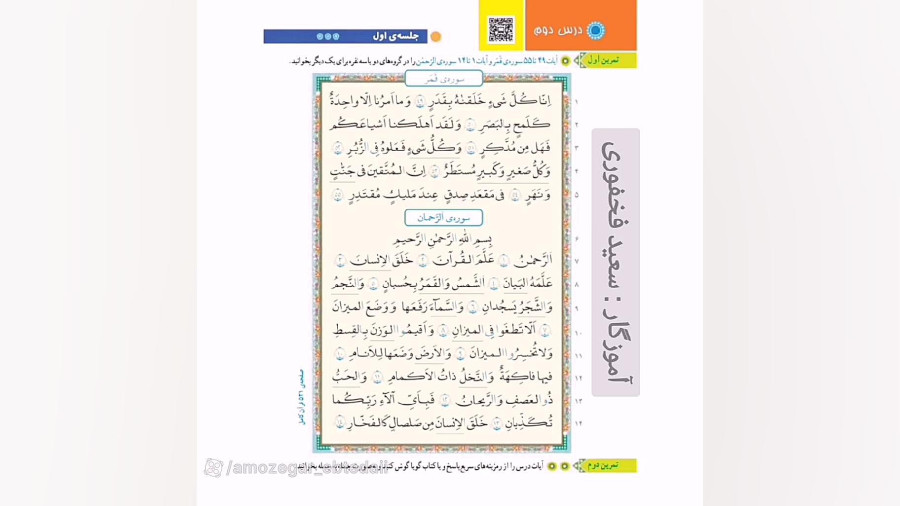 درس دوم
جلسه‌ی اول
تمرین اول
آیات ۴۹ تا ۵۵ سوره‌ی قمر و آیات ۱ تا ۱۴ سوره‌ی الرّحمٰن را در گروه‌های دو یا سه نفره برای یک دیگر بخوانید.
سوره‌ی قمر
۱ اِنّا كُلَّ شَیءٍ خَلَقنٰهُ بِقَدَرٍ ۴۹ وَ ما اَمرُنا اِلّا واحِدَةٌ
۲ كَلَمحٍ بِالبَصَرِ ۵۰ وَ لَقَد اَهلَكنا اَشیاعَكُم
۳ فَهَل مِن مُدَّكِرٍ ۵۱ وَ كُلُّ شَیءٍ فَعَلوهُ فِی الزُّبُرِ ۵۲
۴ وَ كُلُّ صَغیرٍ وَ كَبیرٍ مُستَطَرٌ ۵۳ اِنَّ المُتَّقینَ فی جَنّٰتٍ
۵ وَ نَهَرٍ ۵۴ فی مَقعَدِ صِدقٍ عِندَ مَلیكٍ مُقتَدِرٍ ۵۵
سوره‌ی الرّحمان
۶ بِسمِ اللّٰهِ الرَّحمٰنِ الرَّحیمِ
۷ اَلرَّحمٰنُ ۱ عَلَّمَ القُرآنَ ۲ خَلَقَ الاِنسانَ ۳
۸ عَلَّمَهُ البَیانَ ۴ اَلشَّمسُ وَ القَمَرُ بِحُسبانٍ ۵ وَ النَّجمُ
۹ وَ الشَّجَرُ یَسجُدانِ ۶ وَ السَّمآءَ رَفَعَها وَ وَضَعَ المیزانَ
۱۰ ۷ اَلّا تَطغَوا فِی المیزانِ ۸ وَ اَقیمُوا الوَزنَ بِالقِسطِ
۱۱ وَ لا تُخسِرُوا المیزانَ ۹ وَ الاَرضَ وَضَعَها لِلاَنامِ ۱۰
۱۲ فیها فاكِهَةٌ وَ النَّخلُ ذاتُ الاَكمامِ ۱۱ وَ الحَبُّ
۱۳ ذُو العَصفِ وَ الرَّیحانُ ۱۲ فَبِاَیِّ آلآءِ رَبِّكُما
۱۴ تُكَذِّبانِ ۱۳ خَلَقَ الاِنسانَ مِن صَلصالٍ كَالفَخّارِ ۱۴
صفحه‌ی ۵۳۱ قرآن کامل
آموزگار : سعید فخفوری
تمرین دوم
آیات درس را از رمزینه‌های سریع پاسخ و یا کتاب گویا گوش کنید و به صورت
/amozegar_ebtedaii